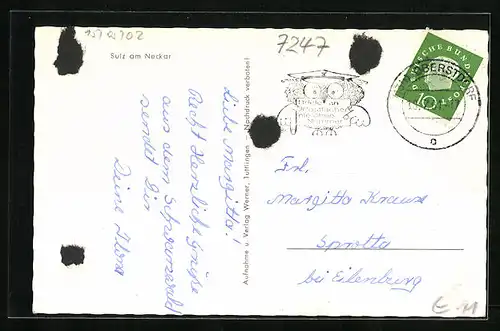 Sulz am Neckar
7247
Liebe Margitta!
Recht Herzliche Grüße
aus dem Schwarzwald
sendet Dir
Deine Ilona
Aufnahme u. Verlag Werner, Tuttlingen - Nachdruck verboten!
DEUTSCHE BUNDESPOST
10
Frl.
Margitta Krause
Sprotta
bei Eilenburg